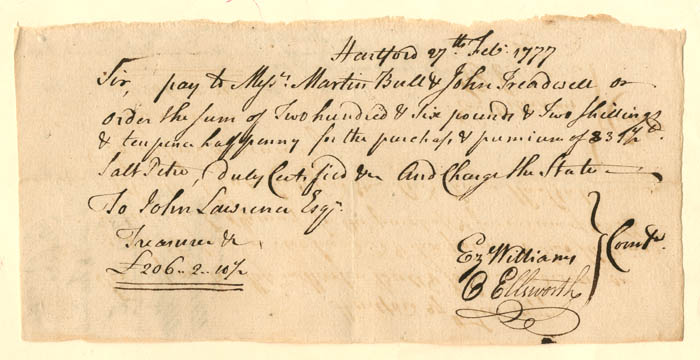 Hartford 27th Feby. 1777
Sir, pay to Messrs. Martin Bull & John Treadwell or
order the sum of Two hundred & Six pounds & Two Shillings
& ten pence half penny for the purchase & premium of
Salt Petre, duly Certified &c And Charge the State
To John Lawrence Esqr.
Treasurer &c
£206..2..10½
Ez Williams
O Ellsworth
Comtee.